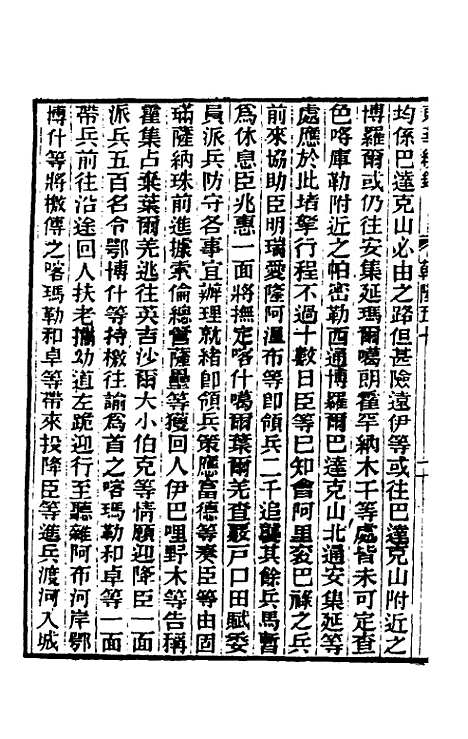 均係巴達克山必由之路但甚險遠伊等或往巴達克山附近之
博羅爾或仍往安集延瑪爾噶朗霍罕納木干等處皆未可定查
色喀庫勒附近之帕密勒西通博羅爾巴達克山北通安集延等
處應於此堵拏行程不過十數日臣等已知會阿里衮巴祿之兵
前來協助臣明瑞愛隆阿溫布等即領兵二千追襲其餘兵馬暫
為休息臣兆惠一面將撫定喀什噶爾葉爾羌查覈戶口田賦委
員派兵防守各事宜辦理就緒即領兵策應富德等奏臣等由固
璊薩納珠前進據索倫總管薩壘等獲回人伊巴哩野木等告稱
霍集占棄葉爾羌逃往英吉沙爾大小伯克等情願迎降臣一面
派兵五百名令鄂博什等持檄往諭為首之喀瑪勒和卓等一面
帶兵前往沿途回人扶老攜幼道左跪迎行至聽雜阿布河岸鄂
博什等將檄傳之喀瑪勒和卓等帶來投降臣等進兵渡河入城